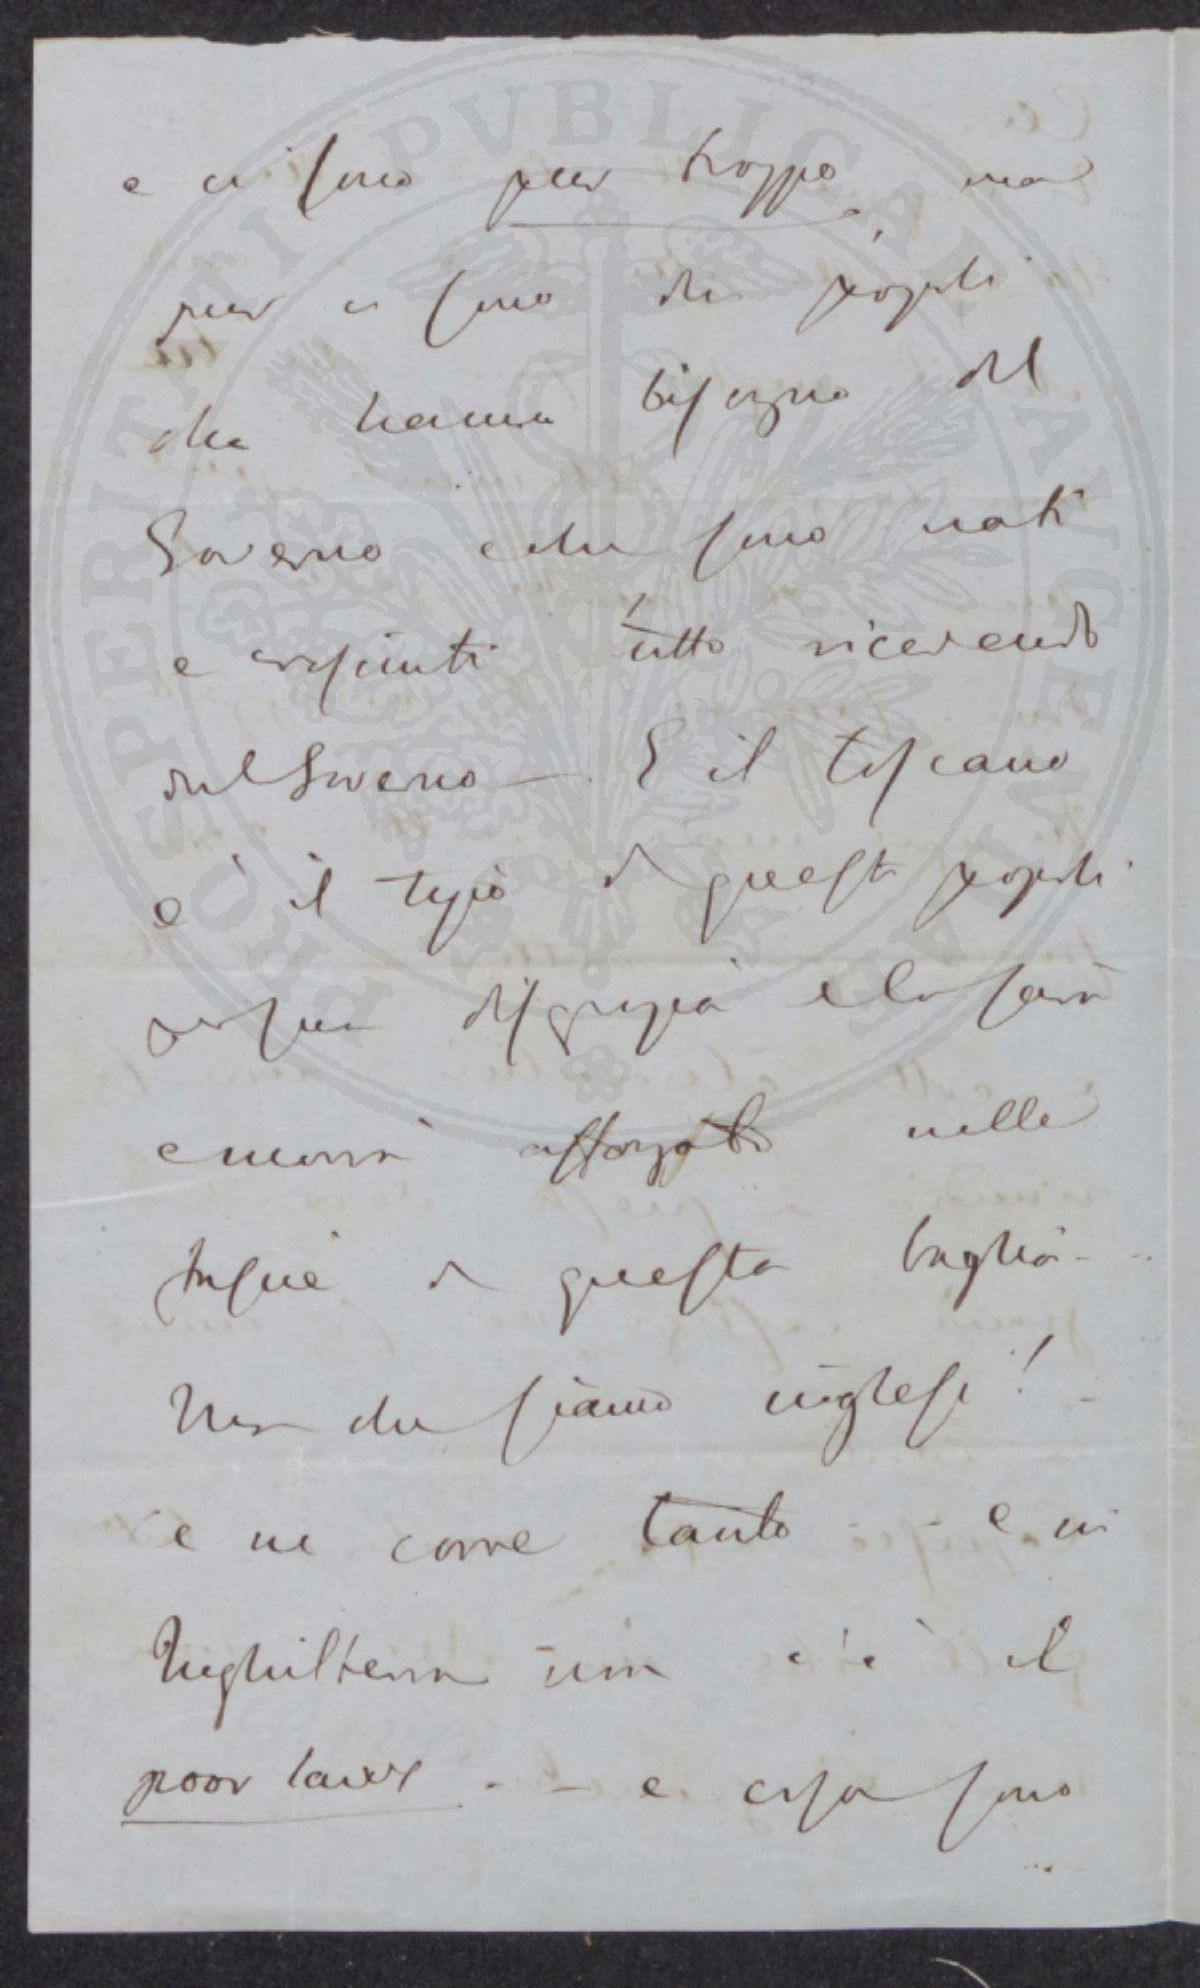 e ci sono pur troppo, ma
pur ci sono dei popoli
che hanno bisogno del
Governo e che sono nati
e cresciuti tutto ricevendo
dal Governo — E il toscano
è il tipo di questi popoli
per sua disgrazia e lo sarà
e morrà affogato nelle
di questa broglia - -
Non che siamo inglesi!
e ne corre tanto - - e in
Inghilterra non c'è il
poor laws - - e cosa sono
PROSPERITATI PVBLICAE AVGENDAE